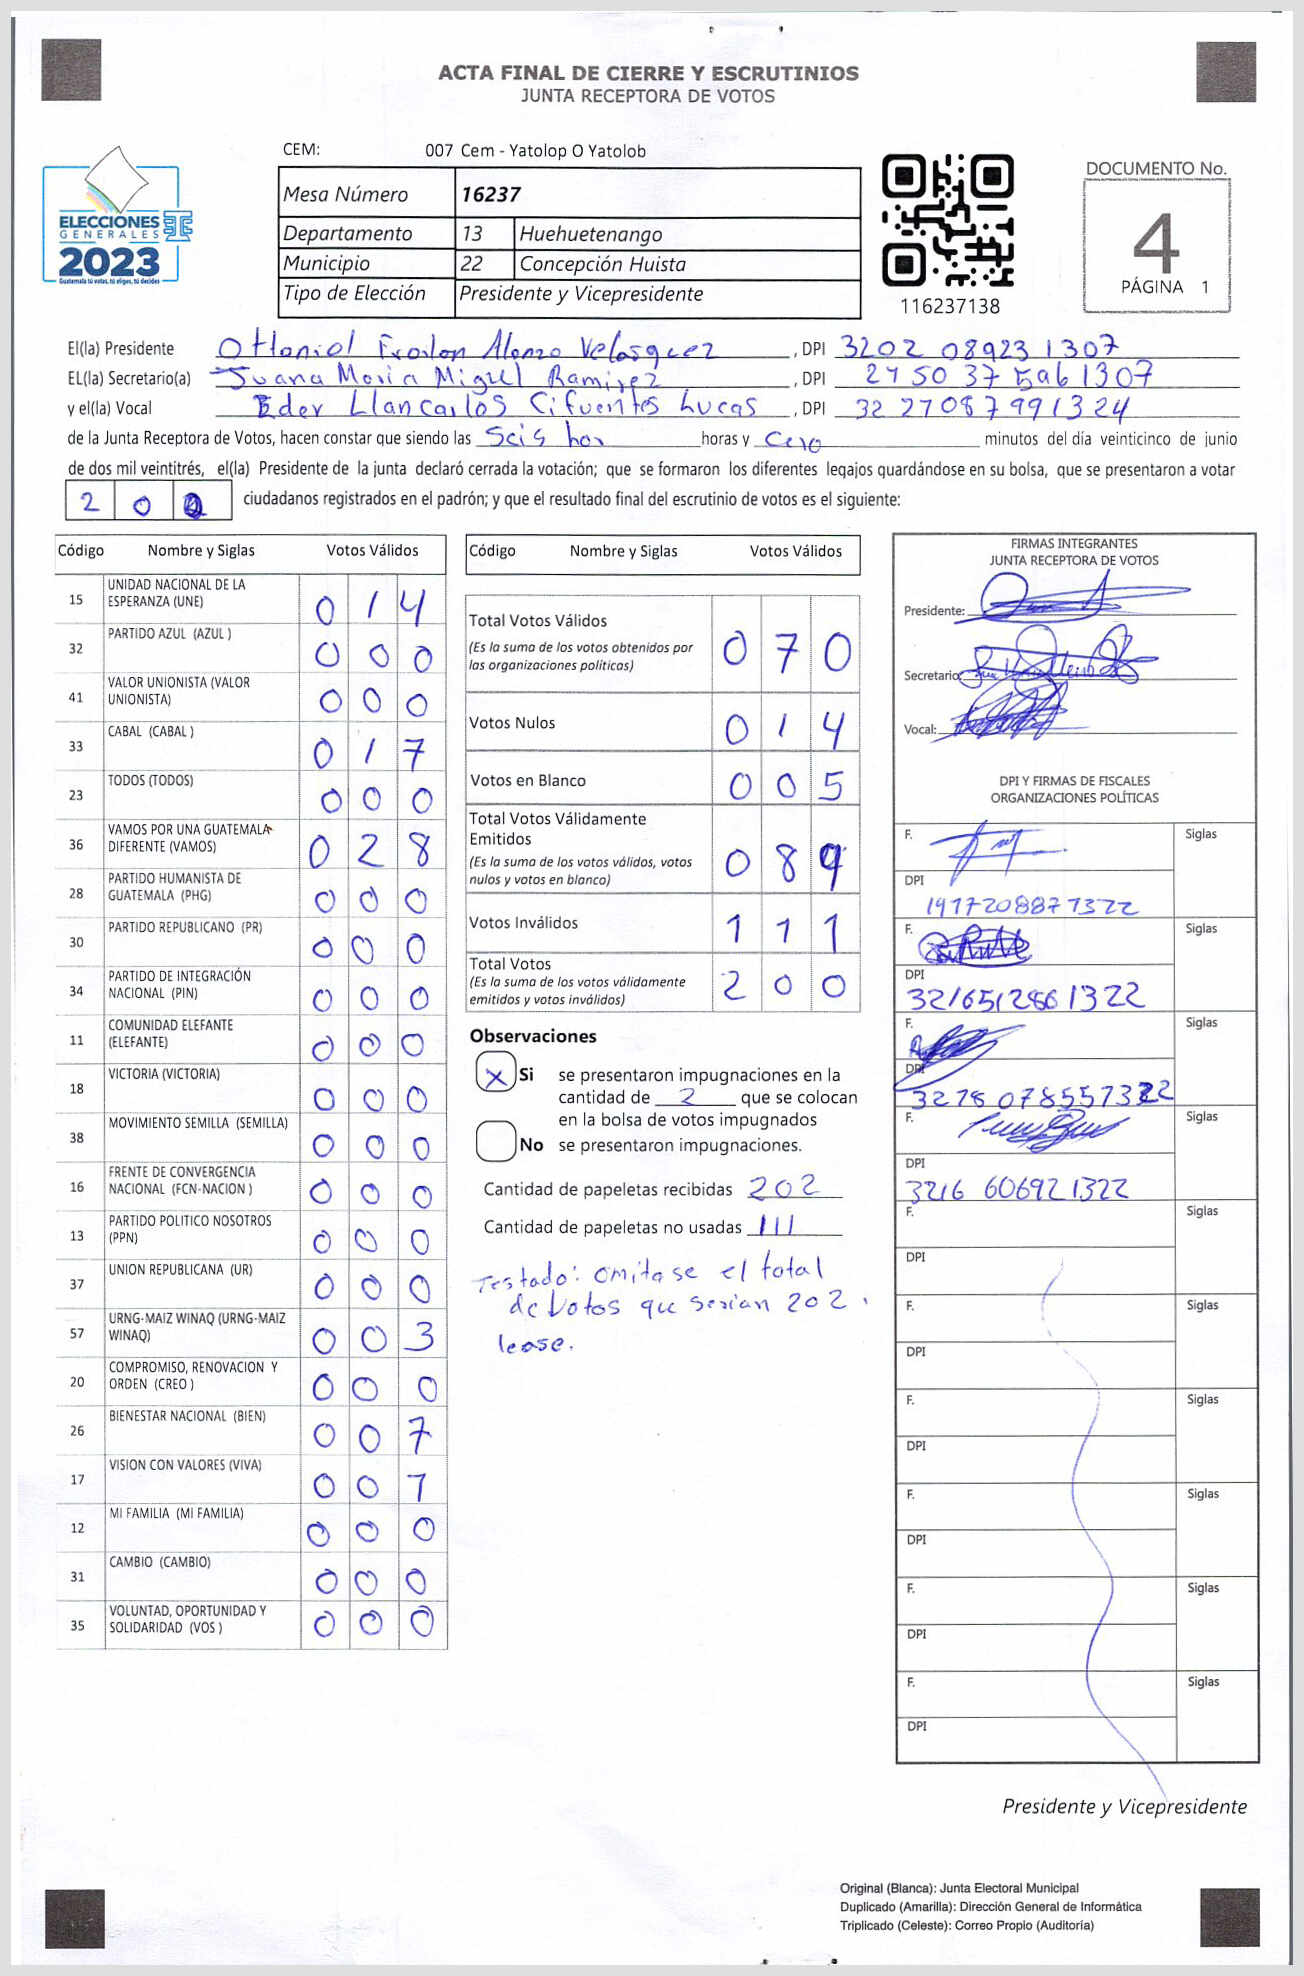 ACTA FINAL DE CIERRE Y ESCRUTINIOS
JUNTA RECEPTORA DE VOTOS
CEM: 007 Cem - Yatolop O Yatolob
Mesa Número 16237
Departamento 13 Huehuetenango
Municipio 22 Concepción Huista
Tipo de Elección Presidente y Vicepresidente
ELECCIONES
GENERALES
2023
Guatemala tú votas, tú eliges, tú decides
116237138
DOCUMENTO No.
4
PÁGINA 1
El(la) Presidente Alonzo Velasquez , DPI 3202 08923 1307
EL(la) Secretario(a) Juana Maria Miguel Ramirez , DPI 2450 37 1307
y el(la) Vocal Eder Llancarlos Cifuentes Lucas , DPI 32 27087991324
de la Junta Receptora de Votos, hacen constar que siendo las Seis hor horas y Cero minutos del día veinticinco de junio
de dos mil veintitrés, el(la) Presidente de la junta declaró cerrada la votación; que se formaron los diferentes legajos quardándose en su bolsa, que se presentaron a votar
2 0 0 ciudadanos registrados en el padrón; y que el resultado final del escrutinio de votos es el siguiente:
Código Nombre y Siglas Votos Válidos
15 UNIDAD NACIONAL DE LA
ESPERANZA (UNE) 0 1 4
32 PARTIDO AZUL (AZUL ) 0 0 0
41 VALOR UNIONISTA (VALOR
UNIONISTA) 0 0 0
33 CABAL (CABAL ) 0 1 7
23 TODOS (TODOS) 0 0 0
36 VAMOS POR UNA GUATEMALA
DIFERENTE (VAMOS) 0 2 8
28 PARTIDO HUMANISTA DE
GUATEMALA (PHG) 0 0 0
30 PARTIDO REPUBLICANO (PR) 0 0 0
34 PARTIDO DE INTEGRACIÓN
NACIONAL (PIN) 0 0 0
11 COMUNIDAD ELEFANTE
(ELEFANTE) 0 0 0
18 VICTORIA (VICTORIA) 0 0 0
38 MOVIMIENTO SEMILLA (SEMILLA) 0 0 0
16 FRENTE DE CONVERGENCIA
NACIONAL (FCN-NACION ) 0 0 0
13 PARTIDO POLITICO NOSOTROS
(PPN) 0 0 0
37 UNION REPUBLICANA (UR) 0 0 0
57 URNG-MAIZ WINAQ (URNG-MAIZ
WINAQ) 0 0 3
20 COMPROMISO, RENOVACION Y
ORDEN (CREO ) 0 0 0
26 BIENESTAR NACIONAL (BIEN) 0 0 7
17 VISION CON VALORES (VIVA) 0 0 1
12 MI FAMILIA (MI FAMILIA) 0 0 0
31 CAMBIO (CAMBIO) 0 0 0
35 VOLUNTAD, OPORTUNIDAD Y
SOLIDARIDAD (VOS ) 0 0 0
Código Nombre y Siglas Votos Válidos
Total Votos Válidos
(Es la suma de los votos obtenidos por
las organizaciones políticas) 0 7 0
Votos Nulos 0 1 4
Votos en Blanco 0 0 5
Total Votos Válidamente
Emitidos
(Es la suma de los votos válidos, votos
nulos y votos en blanco) 0 8 9
Votos Inválidos 1 1 1
Total Votos
(Es la suma de los votos válidamente
emitidos y votos inválidos) 2 0 0
Observaciones
X Si se presentaron impugnaciones en la
cantidad de 2 que se colocan
en la bolsa de votos impugnados
No se presentaron impugnaciones.
Cantidad de papeletas recibidas 202
Cantidad de papeletas no usadas 111
Testado: omitase el total
de votos que serian 202.
lease.
FIRMAS INTEGRANTES
JUNTA RECEPTORA DE VOTOS
Presidente:
Secretario:
Vocal:
DPI Y FIRMAS DE FISCALES
ORGANIZACIONES POLÍTICAS
F. Siglas
DPI
1977208871322
F. Siglas
DPI
3216512861322
F. Siglas
DPI
3278 078557322
F. Siglas
DPI
3216 606921322
F. Siglas
DPI
F. Siglas
DPI
F. Siglas
DPI
F. Siglas
DPI
F. Siglas
DPI
F. Siglas
DPI
Presidente y Vicepresidente
Original (Blanca): Junta Electoral Municipal
Duplicado (Amarilla): Dirección General de Informática
Triplicado (Celeste): Correo Propio (Auditoría)